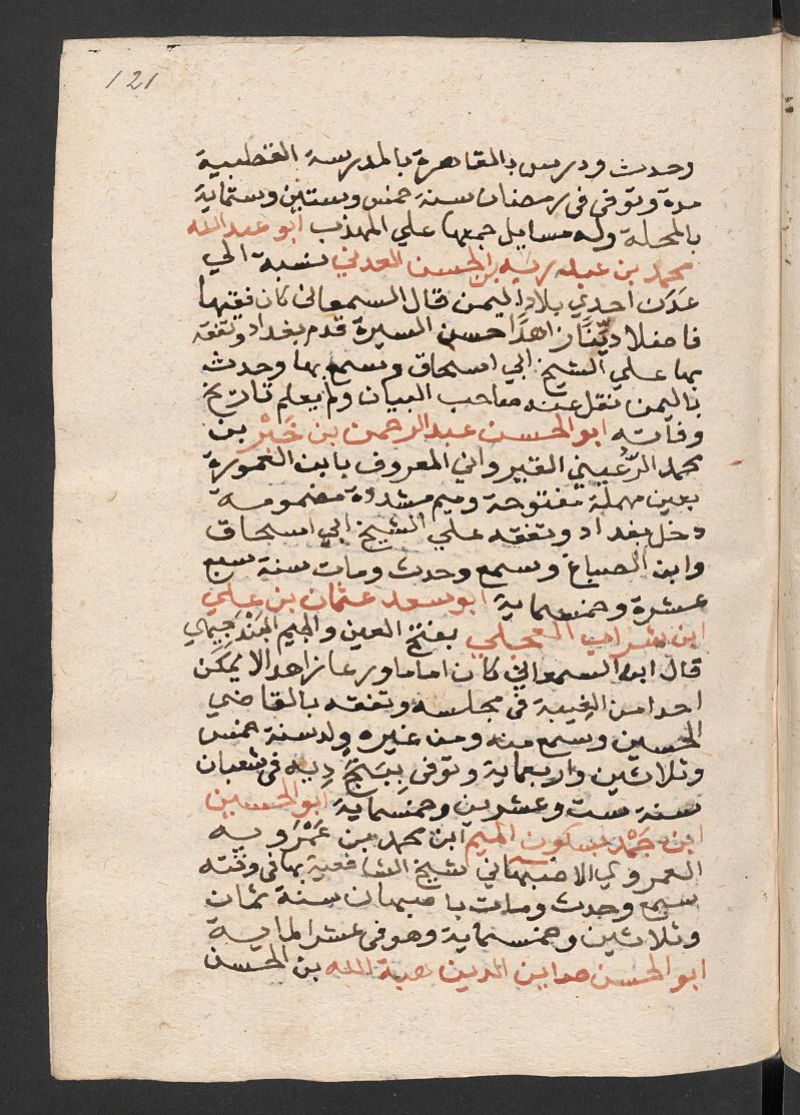 121
وحدث ودرس بالقاهرة بالمدرسة القطبية
مدة وتوفى فى رمضان سنة خمس وستين وستماية
بالمحلة وله مسايل جمعها علي المهذب ابو عبد الله
محمد بن عبدويه بن الحسن العدني نسبة الي
عَدَن احدي بلاد اليمن قال السمعانى كان فقيها
فاضلا ديّنًا زاهدًا حسن السيرة قدم بغداد وتفقه
بها علي الشيخ ابي اسحاق وسمع بها وحدث
باليمن نقل عنه صاحب البيان ولم يعلم تاريخ
وفاته ابو الحسن عبد الرحمن بن خَيْر بن
محمد الرُّعيني القيرواني المعروف بابن العمورة
بعين مهملة مفتوحة وميم مشددة مضمومة
دخل بغداد وتفقه علي الشيخ ابي اسحاق
وابن الصباغ وسمع وحدث ومات سنة سبع
عشرة وخمسماية ابو سعد عثمان بن علي
ابن شراب العجلي بفتح العين والجيم البَنْدَجيهي
قال ابن السمعاني كان اماما ورعا زاهدا لا يمكّن
احدا من الغيبة فى مجلسه وتفقه بالقاضي
الحسين وسمع منه ومن غيره ولد سنة خمس
وثلاثين واربعماية وتوفى ببنج ديه فى شعبان
سنة ست وعشرين وخمسماية ابو الحسين
ابن حَمْد بسكون الميم ابن محمد بن عَمْرَويه
العمروي الاصبهاني شيخ الشافعية بها فى وقته
سمع وحدث ومات باصبهان سنة ثمان
وثلاثين وخمسماية وهو فى عشر الماية
ابو الحسن صداين الدين هبة الله بن الحسن